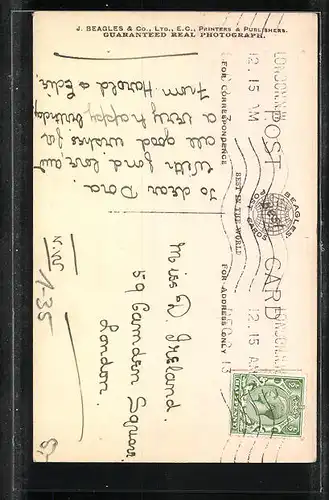 J. BEAGLES & CO., LTD., E.C., PRINTERS & PUBLISHERS.
GUARANTEED REAL PHOTOGRAPH.
POST CARD
BEAGLES'
POST CARDS
BEST
BEST IN THE WORLD
FOR CORRESPONDENCE
FOR ADDRESS ONLY
LONDON. N.W
12.15 AM
LONDON. N.W
12.15 AM
13
To dear Dora.
With fond love and
all good wishes for
a very happy birthday
From Harold & Edie.
Miss D. Ireland.
59 Camden Square
London.
N.W.